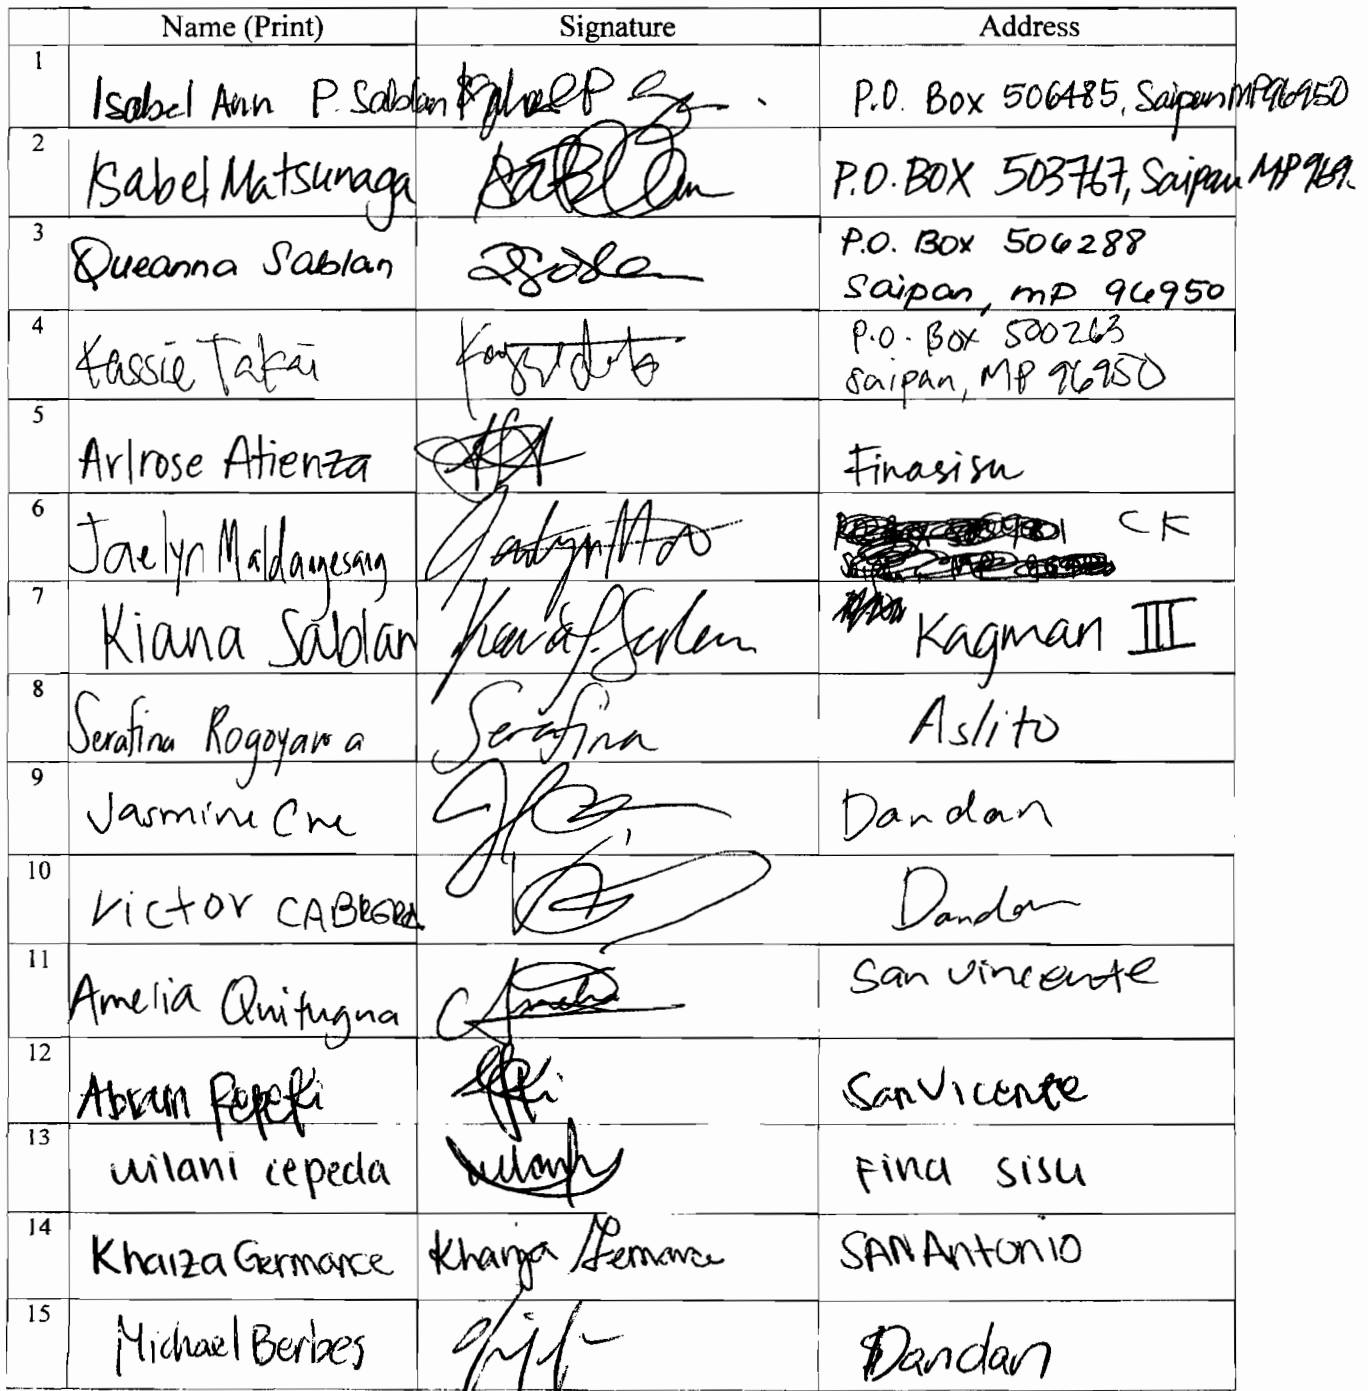 Name (Print) Signature Address
1 Isabel Ann P. Sablan P.O. Box 506485, Saipan MP 96950
2 Isabel Matsunaga P.O. BOX 503767, Saipan MP 969
3 Queanna Sablan P.O. Box 506288
Saipan, MP 96950
4 Kassie Takai P.O. Box 500263
Saipan, MP 96950
5 Arlrose Atienza Finasisu
6 Jaelyn CK
7 Kiana Sablan Kagman III
8 Serafina Serafina Aslito
9 Jasmine Dandan
10 Victor CABRERA Dandan
11 Amelia Quitugua San Vincente
12 Abram San Vicente
13 cepeda Fina sisu
14 Khaiza Germance Khaiza Germance SAN Antonio
15 Michael Berbes Dandan